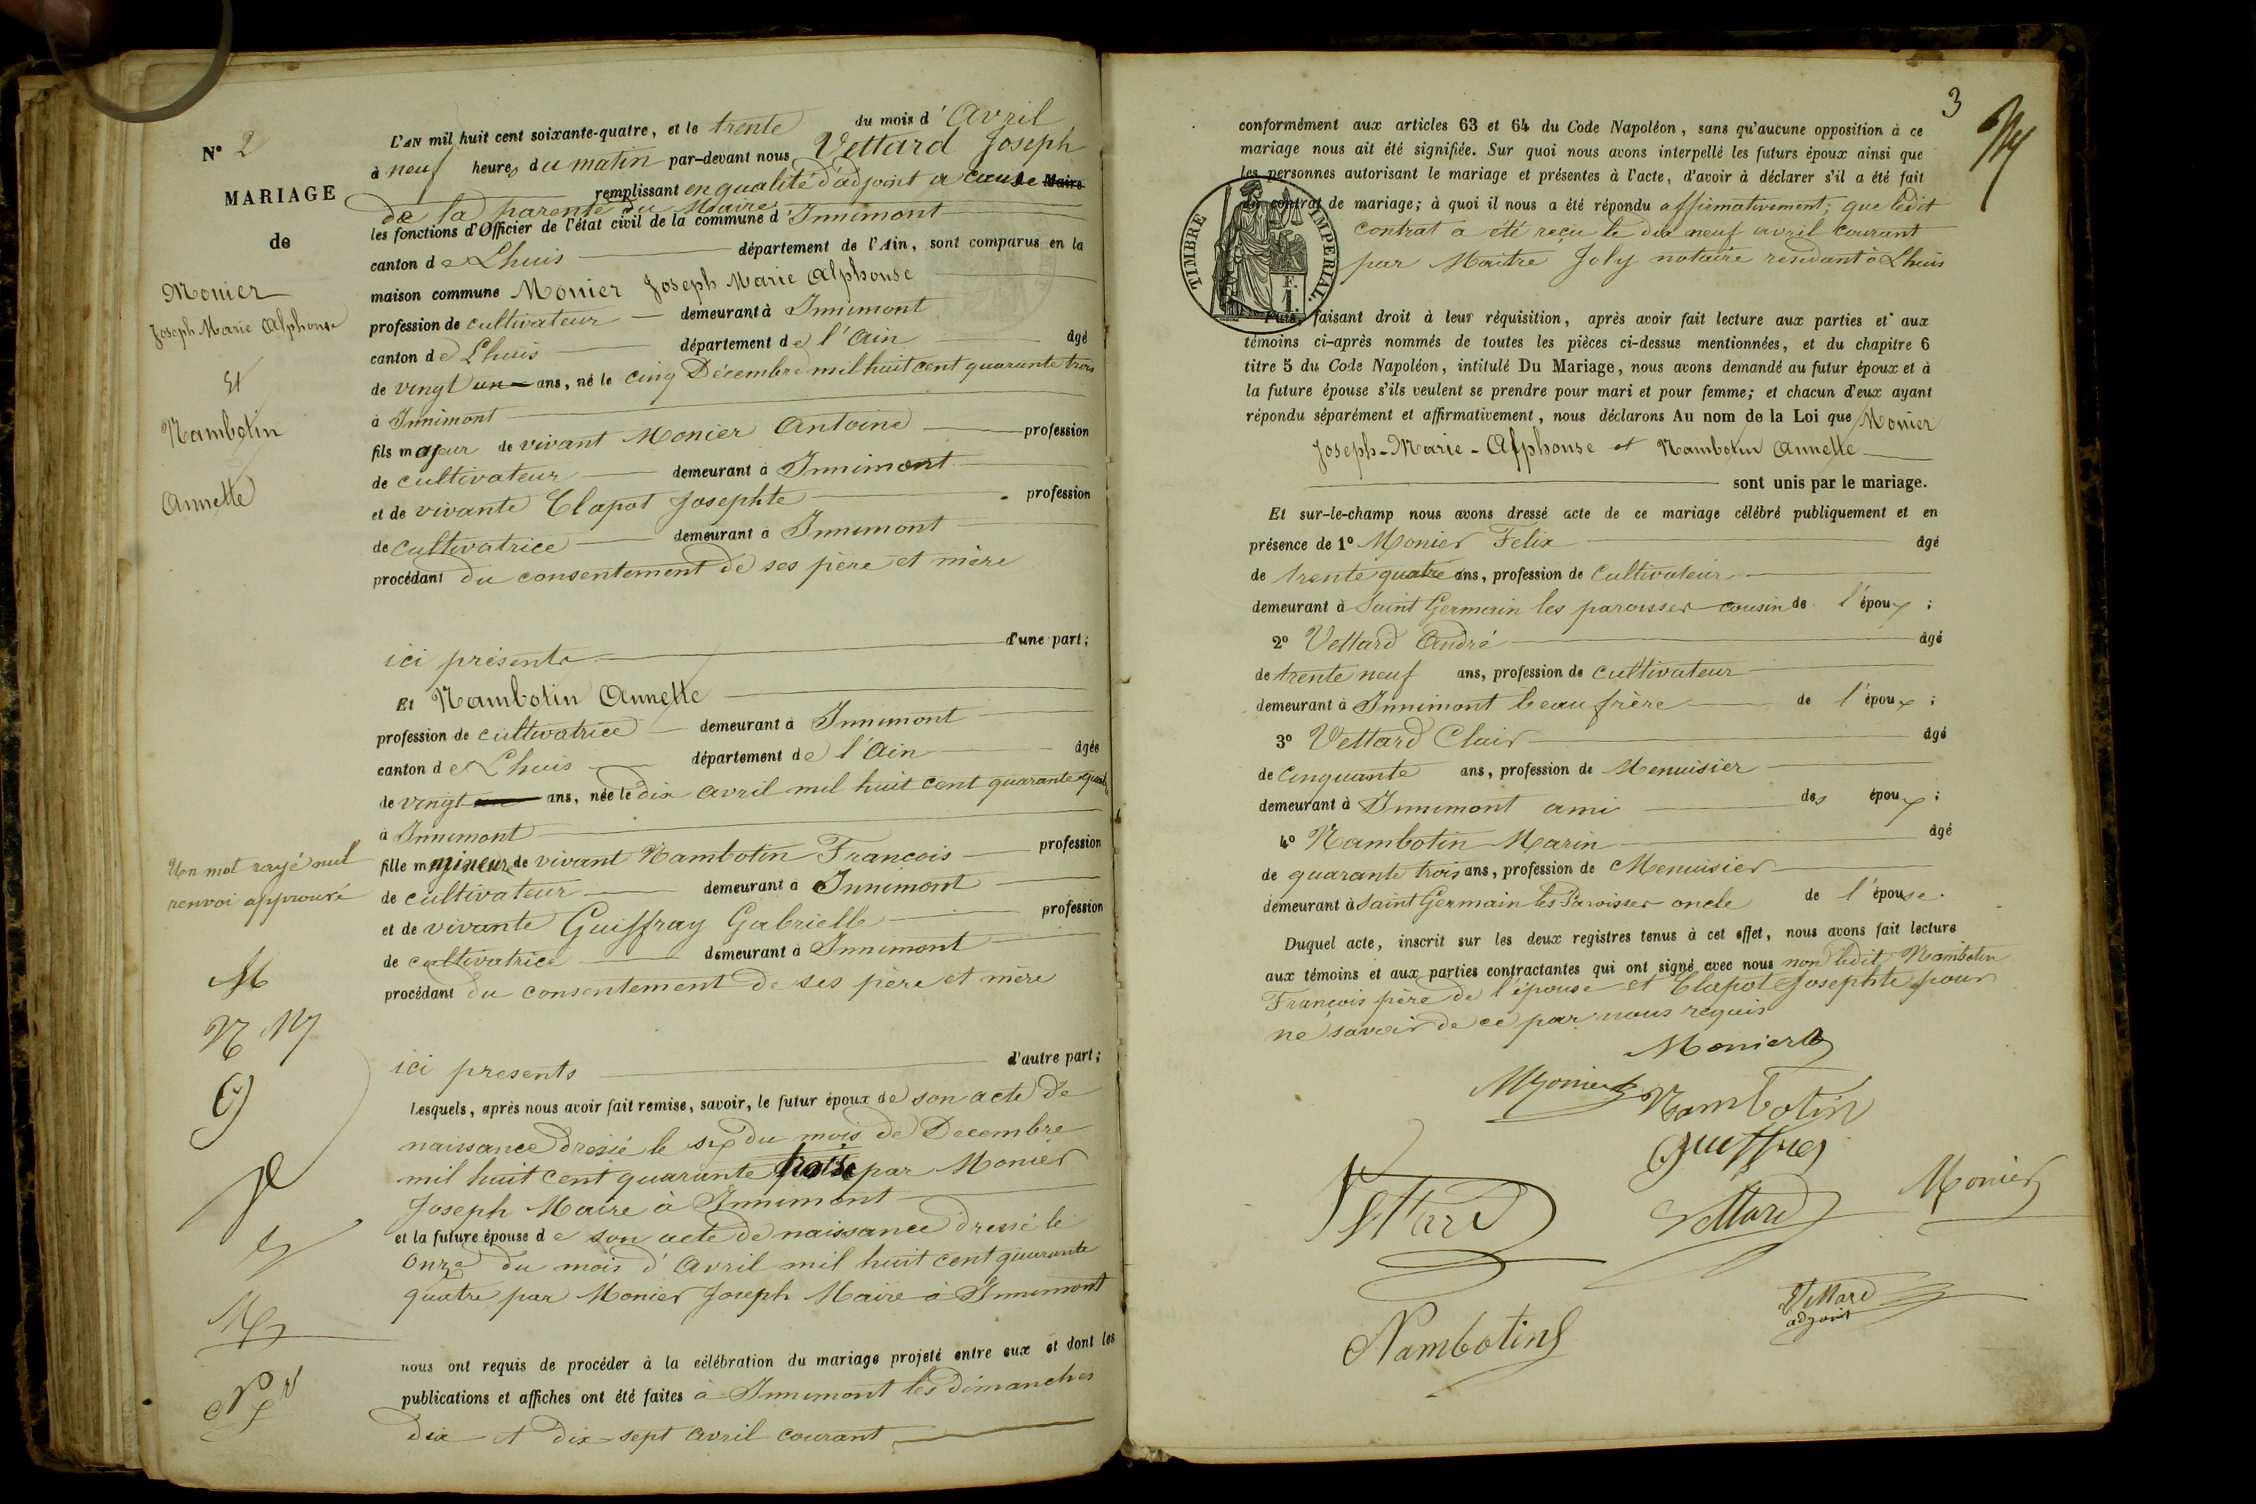 N° 2
MARIAGE
de
Monier
Joseph Marie Alphonse
Et
Nambotin
Annette
L'AN mil huit cent soixante-quatre, et le trente du mois d'Avril
à neuf heures du matin par-devant nous Vettard Joseph
remplissant en qualité d'adjoint a cause Maire
de la parenté du Maire
les fonctions d'Officier de l'état civil de la commune d'Innimont
canton de Lhuis département de l'Ain, sont comparus en la
maison commune Monier Joseph Marie Alphonse
profession de cultivateur demeurant à Innimont
canton de Lhuis département de l'Ain âgé
de vingt un ans, né le cinq Décembre mil huit cent quarante trois
à Innimont
fils majeur de vivant Monier Antoine profession
de cultivateur demeurant à Innimont
et de vivante Clapot Josephte profession
de cultivatrice demeurant à Innimont
procédant du consentement de ses père et mère
ici présents d'une part;
Et Nambotin Annette
profession de cultivatrice demeurant à Innimont
canton de Lhuis département de l'Ain âgée
de vingt ans, née le dix avril mil huit cent quarante quatre
à Innimont
fille mineure de vivant Nambotin François profession
de cultivateur demeurant à Innimont
et de vivante Guiffray Gabrielle profession
de cultivatrice demeurant à Innimont
procédant du consentement de ses père et mère
ici presents d'autre part;
Un mot rayé nul
renvoi approuvé
Lesquels, après nous avoir fait remise, savoir, le futur époux de son acte de
naissance dressé le six du mois de Decembre
mil huit cent quarante trois par Monier
Joseph Maire à Innimont
et la future épouse de son acte de naissance dressé le
onze du mois d'Avril mil huit cent quarante
quatre par Monier Joseph Maire à Innimont
nous ont requis de procéder à la célébration du mariage projeté entre eux et dont les
publications et affiches ont été faites à Innimont les dimanches
dix et dix-sept avril courant
3
conformément aux articles 63 et 64 du Code Napoléon, sans qu'aucune opposition à ce
mariage nous ait été signifiée. Sur quoi nous avons interpellé les futurs époux ainsi que
les personnes autorisant le mariage et présentes à l'acte, d'avoir à déclarer s'il a été fait
de contrat de mariage; à quoi il nous a été répondu affirmativement; que ledit
contrat a été reçu le dix neuf avril courant
par Maitre Joly notaire residant à Lhuis
TIMBRE IMPERIAL.
F.
1.
Puis, faisant droit à leur réquisition, après avoir fait lecture aux parties et aux
témoins ci-après nommés de toutes les pièces ci-dessus mentionnées, et du chapitre 6
titre 5 du Code Napoléon, intitulé Du Mariage, nous avons demandé au futur époux et à
la future épouse s'ils veulent se prendre pour mari et pour femme; et chacun d'eux ayant
répondu séparément et affirmativement, nous déclarons Au nom de la Loi que Monier
Joseph-Marie-Alphonse et Nambotin Annette
sont unis par le mariage.
Et sur-le-champ nous avons dressé acte de ce mariage célébré publiquement et en
présence de 1° Monier Felix âgé
de trente quatre ans, profession de Cultivateur
demeurant à Saint Germain les paroisses cousin de l'époux;
2° Vettard André âgé
de trente neuf ans, profession de cultivateur
demeurant à Innimont beau frère de l'époux;
3° Vettard Clair âgé
de Cinquante ans, profession de Menuisier
demeurant à Innimont ami des époux;
4° Nambotin Marin âgé
de quarante trois ans, profession de Menuisier
demeurant à Saint Germain les Paroisses oncle de l'épouse.
Duquel acte, inscrit sur les deux registres tenus à cet effet, nous avons fait lecture
aux témoins et aux parties contractantes qui ont signé avec nous non ledit Nambotin
François père de l'épouse et Clapot Josephte pour
ne savoir de ce par nous requis
Monier
Monier
Nambotin
Vettard
Vettard
Monier
Nambotin
Vettard
adjoint